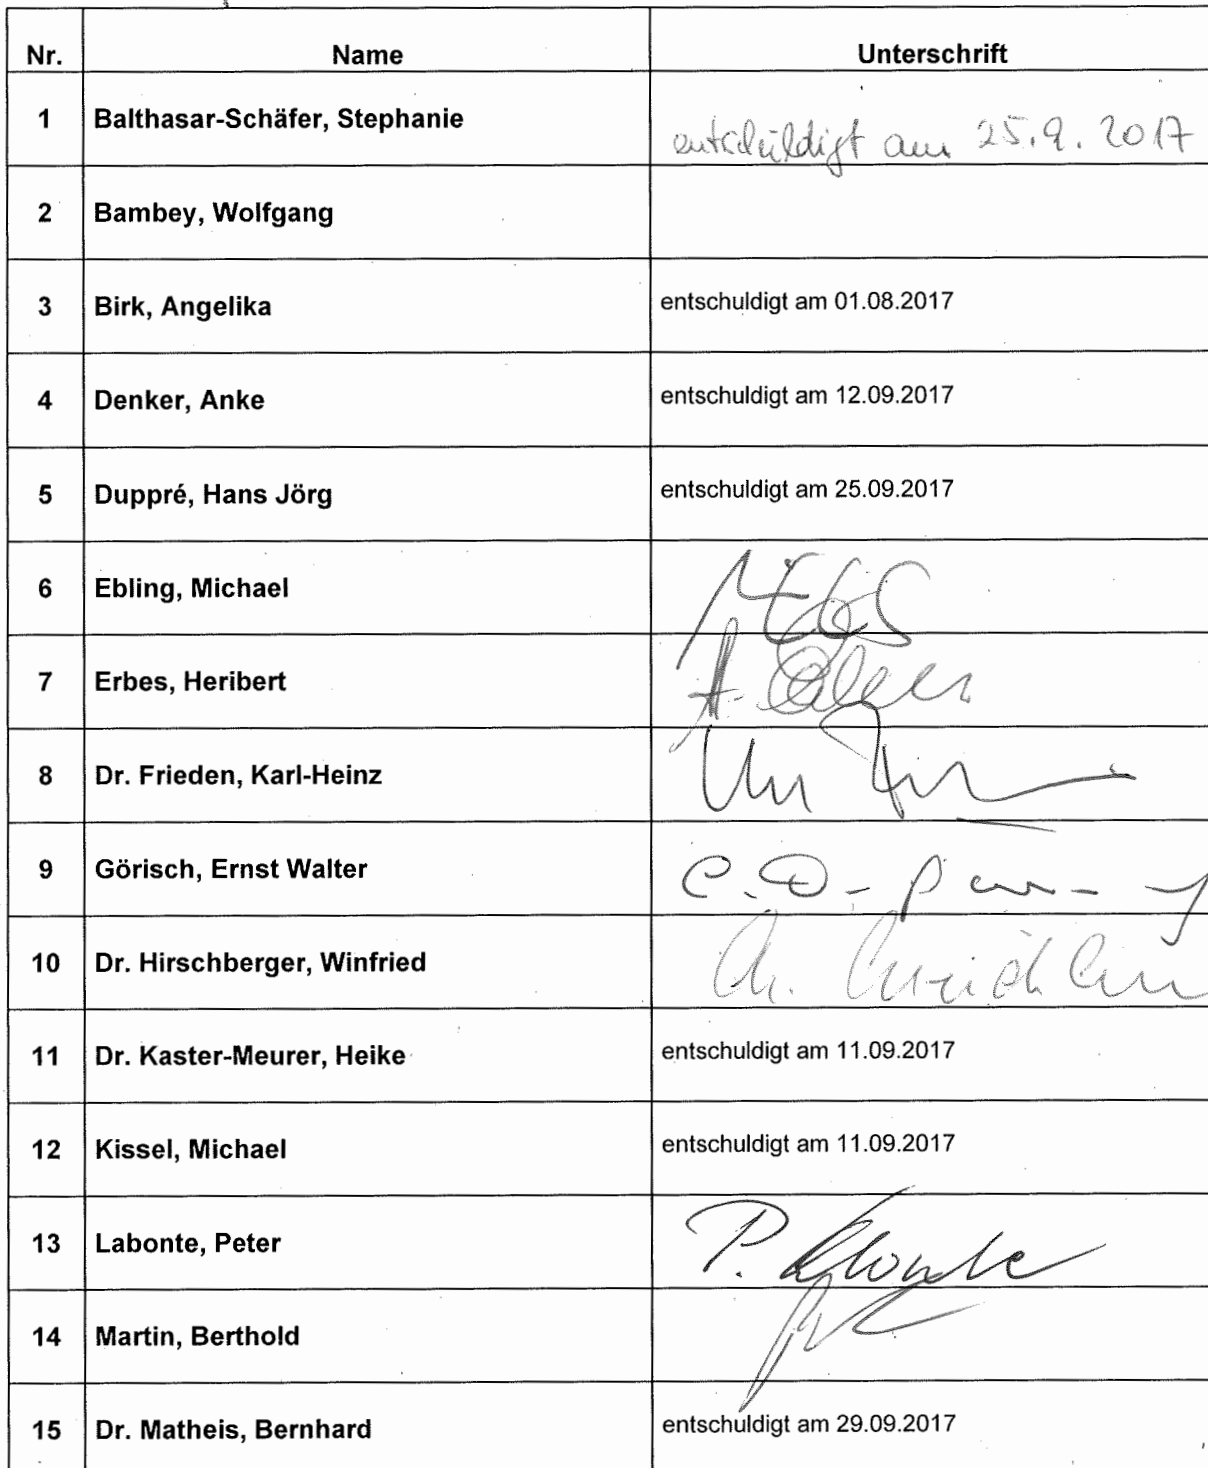 Nr. Name Unterschrift
1 Balthasar-Schäfer, Stephanie entschuldigt am 25.9.2017
2 Bambey, Wolfgang
3 Birk, Angelika entschuldigt am 01.08.2017
4 Denker, Anke entschuldigt am 12.09.2017
5 Duppré, Hans Jörg entschuldigt am 25.09.2017
6 Ebling, Michael
7 Erbes, Heribert
8 Dr. Frieden, Karl-Heinz
9 Görisch, Ernst Walter
10 Dr. Hirschberger, Winfried
11 Dr. Kaster-Meurer, Heike entschuldigt am 11.09.2017
12 Kissel, Michael entschuldigt am 11.09.2017
13 Labonte, Peter P. Labonte
14 Martin, Berthold
15 Dr. Matheis, Bernhard entschuldigt am 29.09.2017